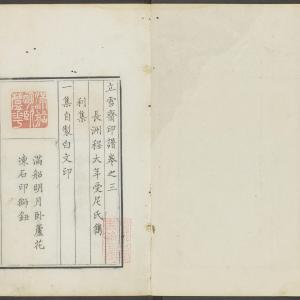 立雪齋印譜卷之三
長洲程大年受尼氏鐫
利集
一集自製白文印
滿船明月臥蘆花
凍石印獅鈕